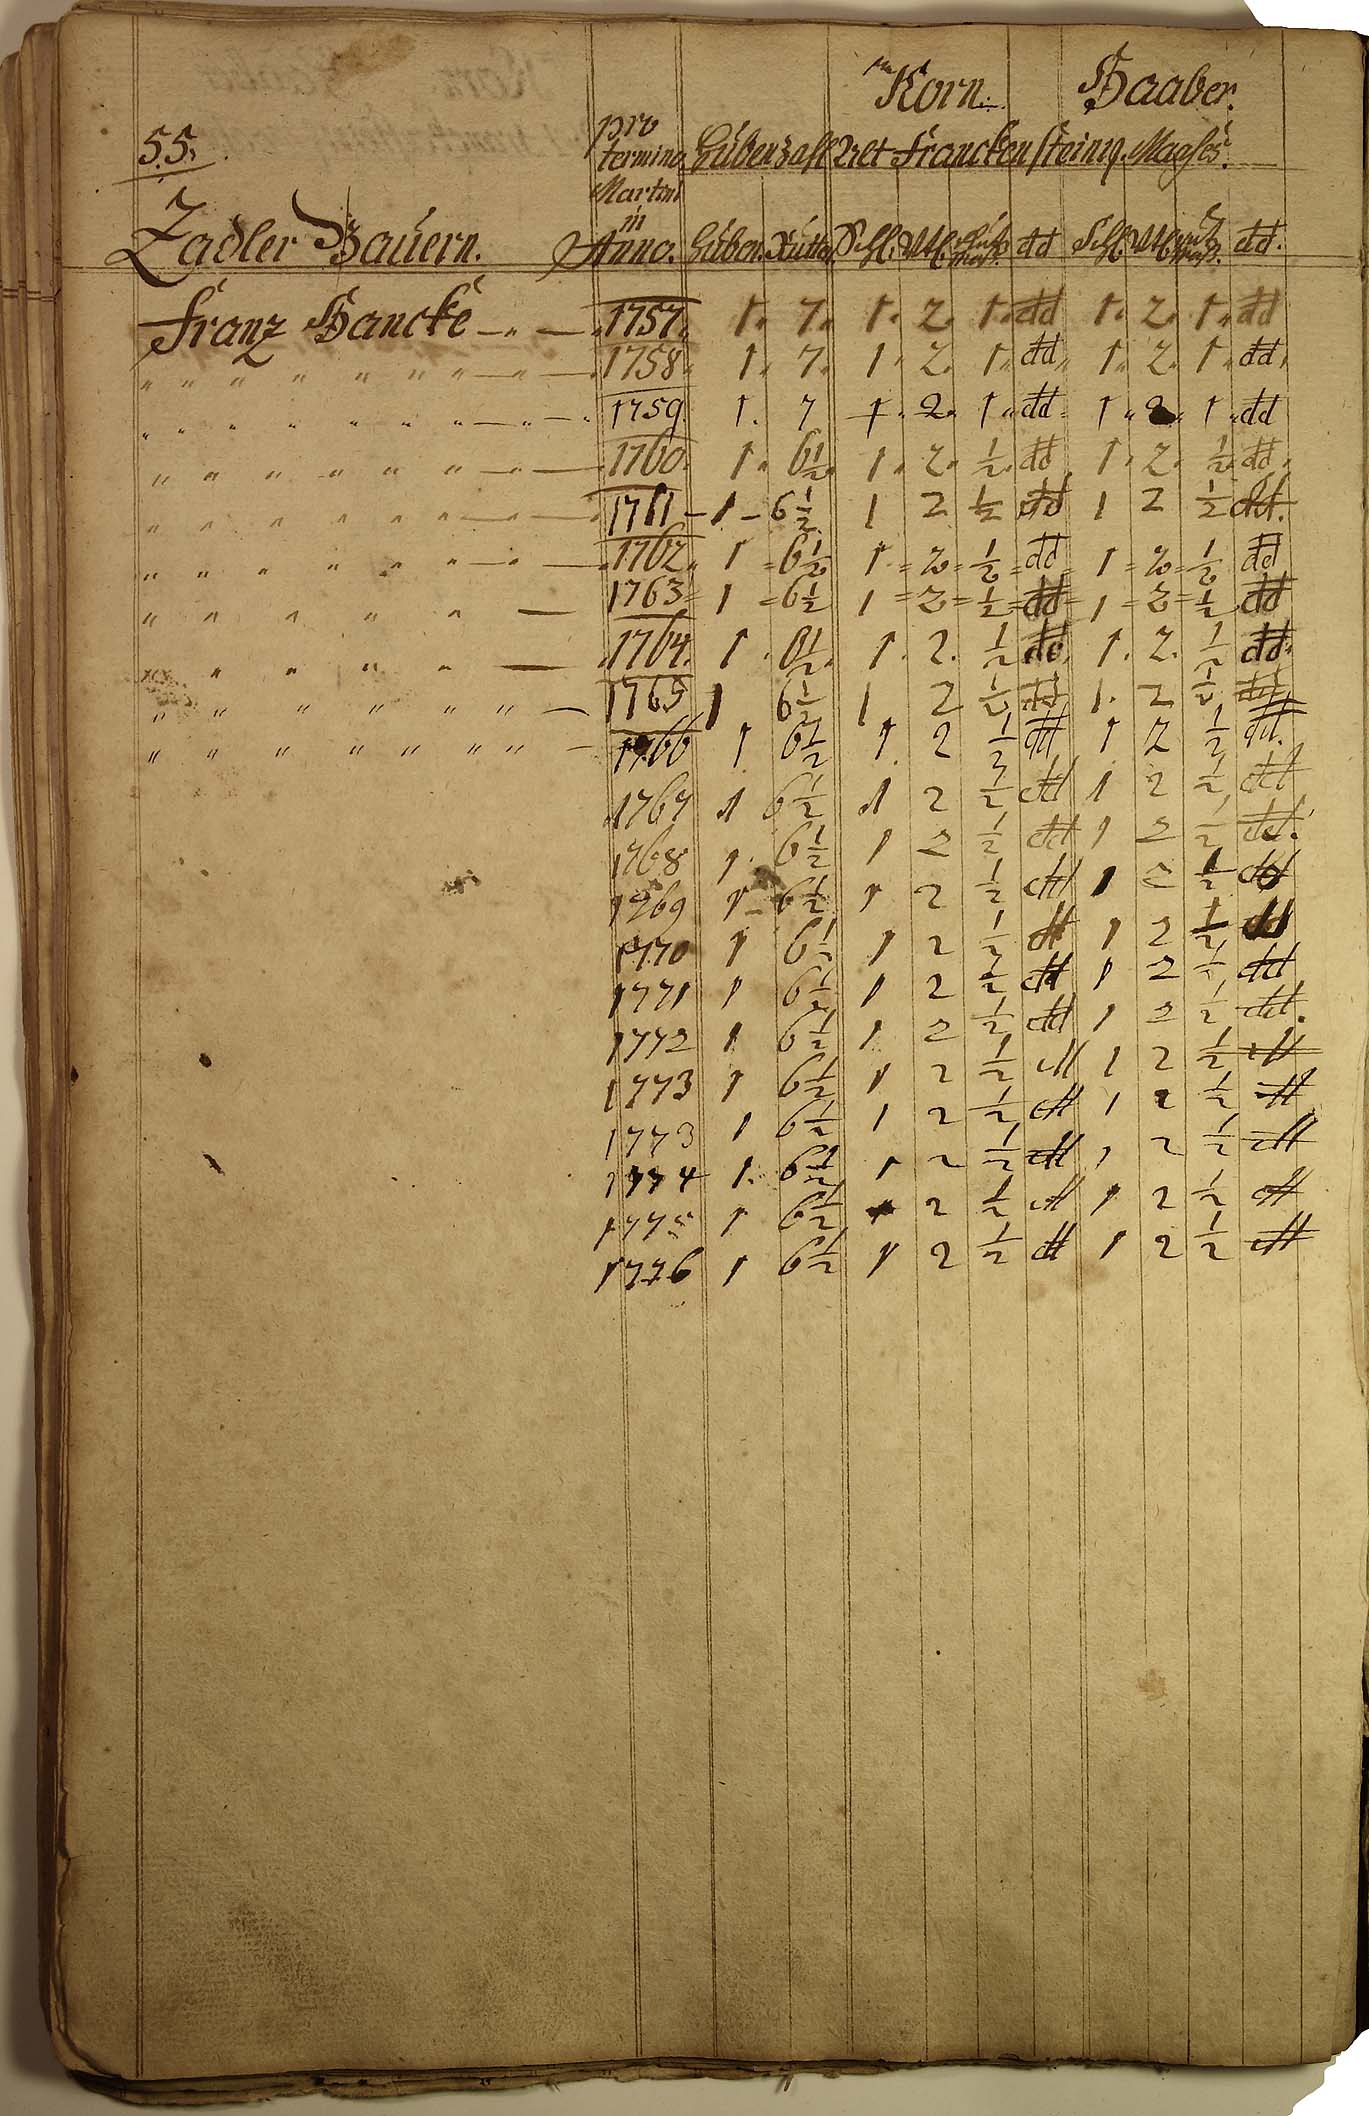 Korn. Haaber.
55.
pro termino Martini in Anno. Hubenzahl Alt Franckensteinig. Maaßes.
Zadler Bauern. Huben. Rutte Schl. Vtl. dd Schl. Vtl. dd.
Franz Hancke — " — 1757. 1. 7. 1. 2. 1. dd 1. 2. 1. dd
" " " " " " " — " — 1758. 1. 7. 1. 2. 1. dd. 1. 2. 1. dd.
" " " " " " " " — " — 1759 1. 7 1. 2. 1. dd 1. 2. 1. dd
" " " " " " — " — 1760. 1. 6½. 1. 2. ½. dd 1. 2. ½. dd.
" " " " " " — " — 1761 – 1 – 6½ 1 2 ½ dd 1 2 ½ dd.
" " " " " " — " — 1762. 1 = 6½ 1 = 2 = ½ = dd = 1 = 2 = ½ dd
" " " " " — 1763 = 1 = 6½ 1 = 2 = ½ = dd = 1 = 2 = ½ dd
" " " " — 1764. 1. 6½. 1. 2. ½ dd. 1. 2. ½ dd.
" " " " " " — 1765 1 6½ 1 2 ½ dd 1. 2 ½ dd
" " " " " " " — 1766 1 6½ 1. 2 ½ dd 1 2 ½ dd.
1767 1 6½ 1 2 ½ dd 1 2 ½ dd
1768 1. 6½ 1 2 ½ dd 1 2 ½ dd.
1769 1 – 6½ 1 2 ½ dd 1 2 ½ dd
1770 1 6½ 1 2 ½ dd 1 2 ½ dd
1771 1 6½ 1 2 ½ dd 1 2 ½ dd
1772 1 6½ 1 2 ½ dd 1 2 ½ dd.
1773 1 6½ 1 2 ½ dd 1 2 ½ dd
1773 1 6½ 1 2 ½ dd 1 2 ½ dd
1774 1. 6½ 1 2 ½ dd 1 2 ½ dd
1775 1 6½ 1 2 ½ dd 1 2 ½ dd
1776 1 6½ 1 2 ½ dd 1 2 ½ dd